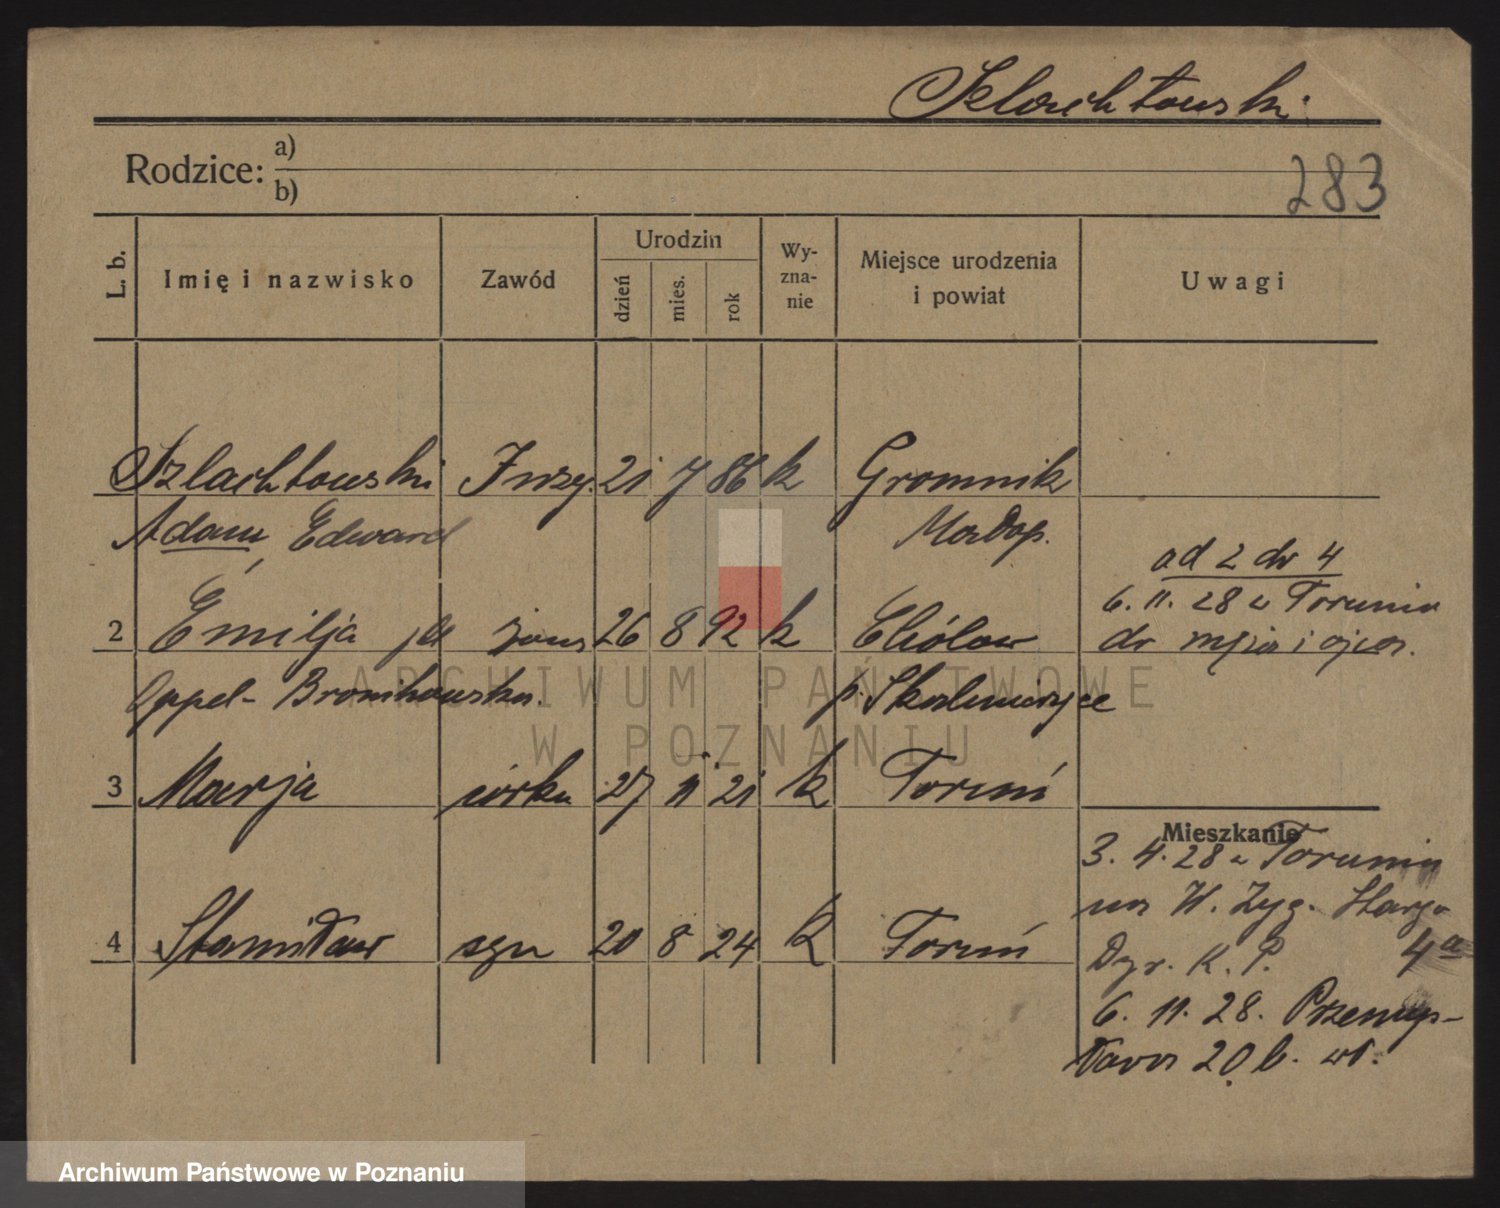 Szlachtowski
Rodzice: a)
b)
283
L. b.
Imię i nazwisko
Zawód
Urodzin
dzień
mies.
rok
Wy-
zna-
nie
Miejsce urodzenia
i powiat
Uwagi
Szlachtowski Inży. 21 7 86 k Gromnik
Adam, Edward Małop.
od 2 do 4
6. 11. 28 z Torunia
2 Emilja żona 26 8 92 k
do męża i ojca.
Oppel-Bromkowska. p. Skalmierzyce
3 Marja córka 27 11 21 k Toruń
Mieszkanie
3. 4. 28 z Torunia
na W. Zyg. Starego
4 Stanisław syn 20 8 24 k Toruń
Dyr. K. P. 4a
6. 11. 28. Przemys-
ława 20 b. wł.
ARCHIWUM PAŃSTWOWE
W POZNANIU
Archiwum Państwowe w Poznaniu